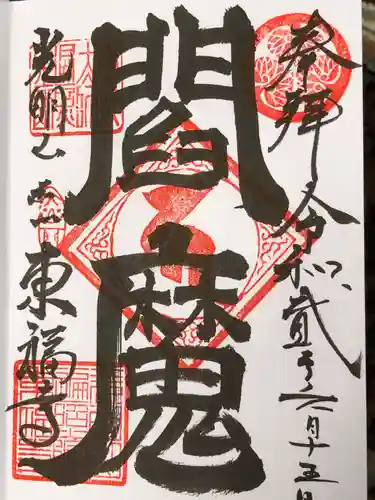 奉拝
令和貳年六月十五日
閻魔
光明山
東福寺